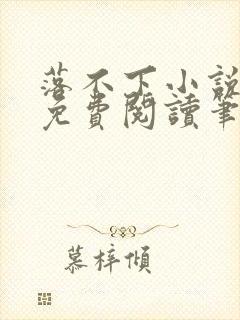 落不下小說
免費閱讀筆
慕梓傾